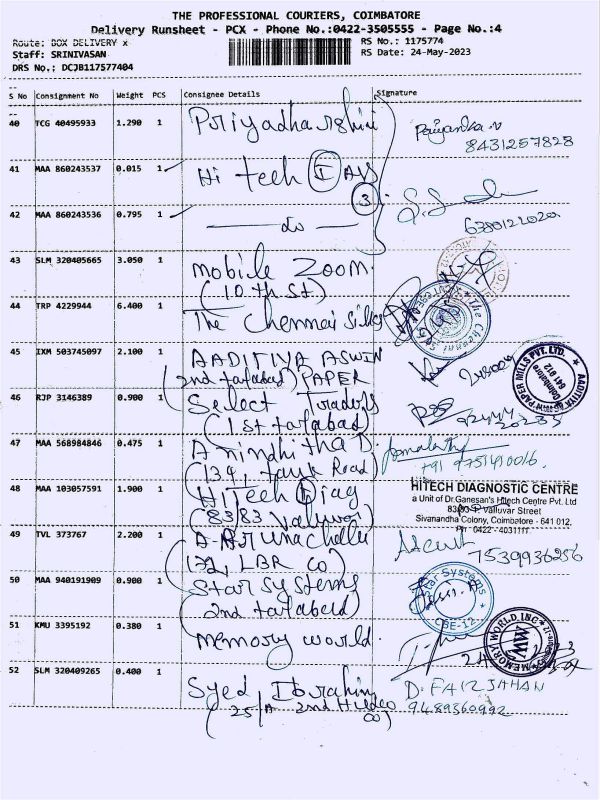 THE PROFESSIONAL COURIERS, COIMBATORE
Delivery Runsheet - PCX - Phone No.:0422-3505555 - Page No.:4
Route: BOX DELIVERY x
Staff: SRINIVASAN
DRS No.: DCJB117577404
RS No.: 1175774
RS Date: 24-May-2023
S No Consignment No Weight PCS Consignee Details Signature
40 TCG 40495933 1.290 1 Priyadharshini Priyanka N
8431257828
41 MAA 860243537 0.015 1 Hi tech
3
42 MAA 860243536 0.795 1 do
6380122020
43 SLM 320405665 3.050 1 mobile Zoom.
(10th St)
44 TRP 4229944 6.400 1 The Chennai Silks
45 IXM 503745097 2.100 1 AADITIYA ASWIN
(2nd tatabad) PAPER
AADITIYA ASWIN PAPER MILLS PVT. LTD.
Coimbatore
641 012
46 RJP 3146389 0.900 1 Select Traders
(1st tatabad)
47 MAA 568984846 0.475 1 Anindhitha D
(139, tank Road)
48 MAA 103057591 1.900 1 HiTech Diag
(83/83 Valuvar)
HITECH DIAGNOSTIC CENTRE
a Unit of Dr.Ganesan's Hitech Centre Pvt. Ltd
Valluvar Street
Sivanandha Colony, Coimbatore - 641 012.
Ph : 0422 - 4031111
49 TVL 373767 2.200 1 A. Arunachallu
172, LBR Co)
7539936256
50 MAA 940191909 0.900 1 Star systems
(2nd tatabad)
Star Systems
CBE-12
51 KMU 3395192 0.380 1 memory world.
MEMORY WORLD INC
MW
52 SLM 320409265 0.400 1 Syed Ibrahim D. FAIRJAHAN
(25/A 2nd 9489360992